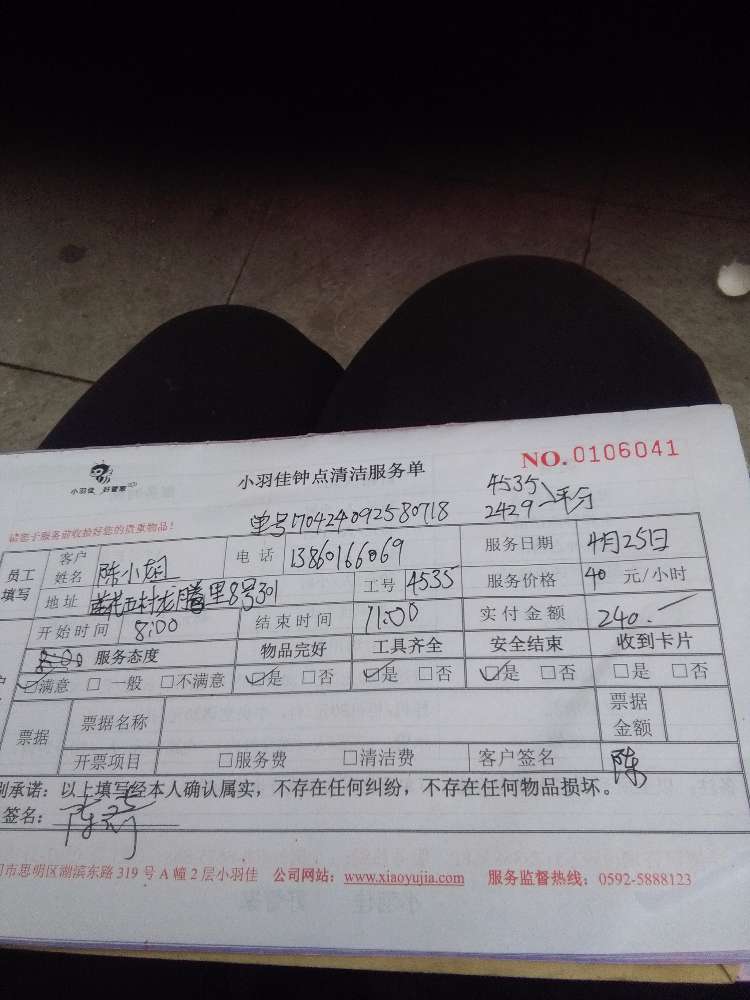 小羽佳 好管家
小羽佳钟点清洁服务单
NO.0106041
请您于服务前收拾好您的贵重物品!
单号170424092580718
4535
2429 平分
员工填写 客户姓名 陈小 电话 13860166069 服务日期 4月25日
地址 莲花五村龙腾里8号301 工号 4535 服务价格 40 元/小时
开始时间 8:00 结束时间 11:00 实付金额 240.
8:00 服务态度 物品完好 工具齐全 安全结束 收到卡片
☑满意 □ 一般 □不满意 ☑是 □否 ☑是 □否 ☑是 □否 □是 □否
票据 票据名称 票据金额
开票项目 □服务费 □清洁费 客户签名 陈
别承诺:以上填写经本人确认属实,不存在任何纠纷,不存在任何物品损坏。
签名:
市思明区湖滨东路 319 号 A 幢 2 层小羽佳 公司网站:www.xiaoyujia.com 服务监督热线:0592-5888123